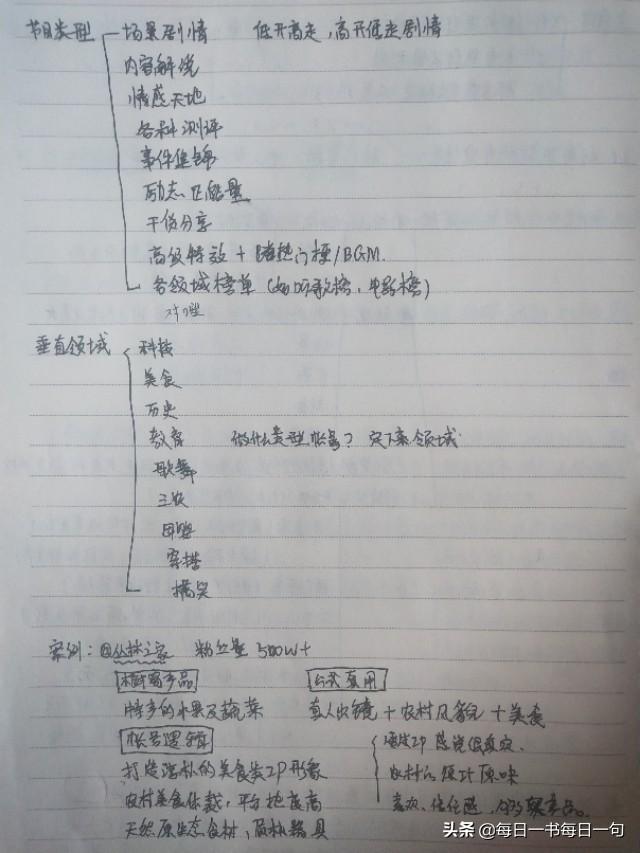 节目类型 场景剧情 低开高走，高开低走剧情
内容解说
情感天地
各种测评
事件集锦
励志正能量
干货分享
高级特效 + 踩热门梗/BGM.
各领域榜单（如听歌榜，电影榜）
垂直领域 科技
美食
历史
教育 做什么类型帐号？定下来领域
歌舞
三农
母婴
穿搭
搞笑
案例：@丛林之家 粉丝量 500W+
橱窗产品 公式套用
特多的水果及蔬菜 真人出镜 + 农村风貌 + 美食
帐号逻辑
打造淳朴的美食类IP形象 农村的原汁原味
农村美食体裁，平台扶持高
天然原生态食材，质朴器具
头条 @每日一书每日一句